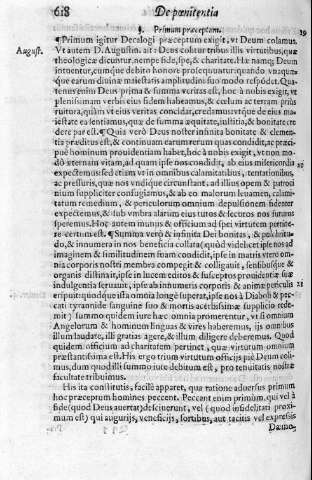 618 De pœnitentia
§. Primum præceptum. 19
¶Primum igitur Decalogi præceptum exigit, vt Deum colamus.
August. Vt autem D. Augustin. ait: Deus colitur tribus illis virtutibus, quæ
theologicæ dicuntur, nempe fide, spe, & charitate. Hæ namq; Deum
intuentur, eumque debito honore prosequuntur: quando vnaquæ-
que earum diuinæ maiestatis amplitudini suo modo respōdet. Qua-
tenus enim Deus prima & summa veritas est, hoc à nobis exigit, vt
plenissimam verbis eius fidem habeamus, & cœlum ac terram priùs
ruitura, quàm vt eius veritas concidat, credamus: vtque de eius ma-
iestate ea sentiamus, quæ de summa æquitate, iustitia, & bonitate cre
dere par est. ¶ Quia verò Deus noster infinita bonitate & clemen-
tia præditus est, & continuam earum rerum quas condidit, ac præci-
puè hominum prouidentiam habet, hoc à nobis exigit, vt non mo-
dò æternam vitam, ad quam ipse nos condidit, ab eius misericordia 20
expectemus: sed etiam vt in omnibus calamitatibus, tentationibus,
ac pressuris, quæ nos vndique circunstant, ad illius opem & patroci
nium suppliciter confugiamus, & ab eo malorum leuamen, calami-
tatum remedium, & periculorum omnium depulsionem fidenter
expectemus, & sub vmbra alarum eius tutos & securos nos futuros
speremus. Hoc autem munus & officium ad spei virtutem pertine-
re certum est. ¶ Summa verò & infinita Dei bonitas, & pulchritu-
do, & innumera in nos beneficia collata (quòd videlicet ipse nos ad
imaginem & similitudinem suam condidit, ipse in matris vtero om-
nia corporis nostri membra compegit & colligauit, sensibusque &
organis distinxit, ipse in lucem editos & susceptos prouidentiæ suæ
indulgentia seruauit, ipse ab innumeris corporis & animæ periculis 21
eripuit: quodque ista omnia longè superat, ipse nos à Diaboli & pec-
cati tyrannide sanguine suo & mortis acerbissimæ supplicio rede-
mit) summo quidem iure hæc omnia promerentur, vt si omnium
Angelorum & hominum linguas & vires haberemus, ijs omnibus
illum laudare, illi gratias agere, & illum diligere deberemus. Quod
quidem officium ad charitatem pertinet, quæ virtutum omnium
præstantissima est. His ergo trium virtutum officijs piè Deum coli-
mus, dum quod illi summo iure debitum est, pro tenuitatis nostræ
facultate tribuimus.
His ita constitutis, facilè apparet, qua ratione aduersus primum
hoc præceptum homines peccent. Peccent enim primùm, qui vel à
fide (quod Deus auertat) desciuerunt, vel (quod infidelitati proxi-
mum est) qui augurijs, veneficijs, sortibus, aut tacitis vel expressis
Dæmo-